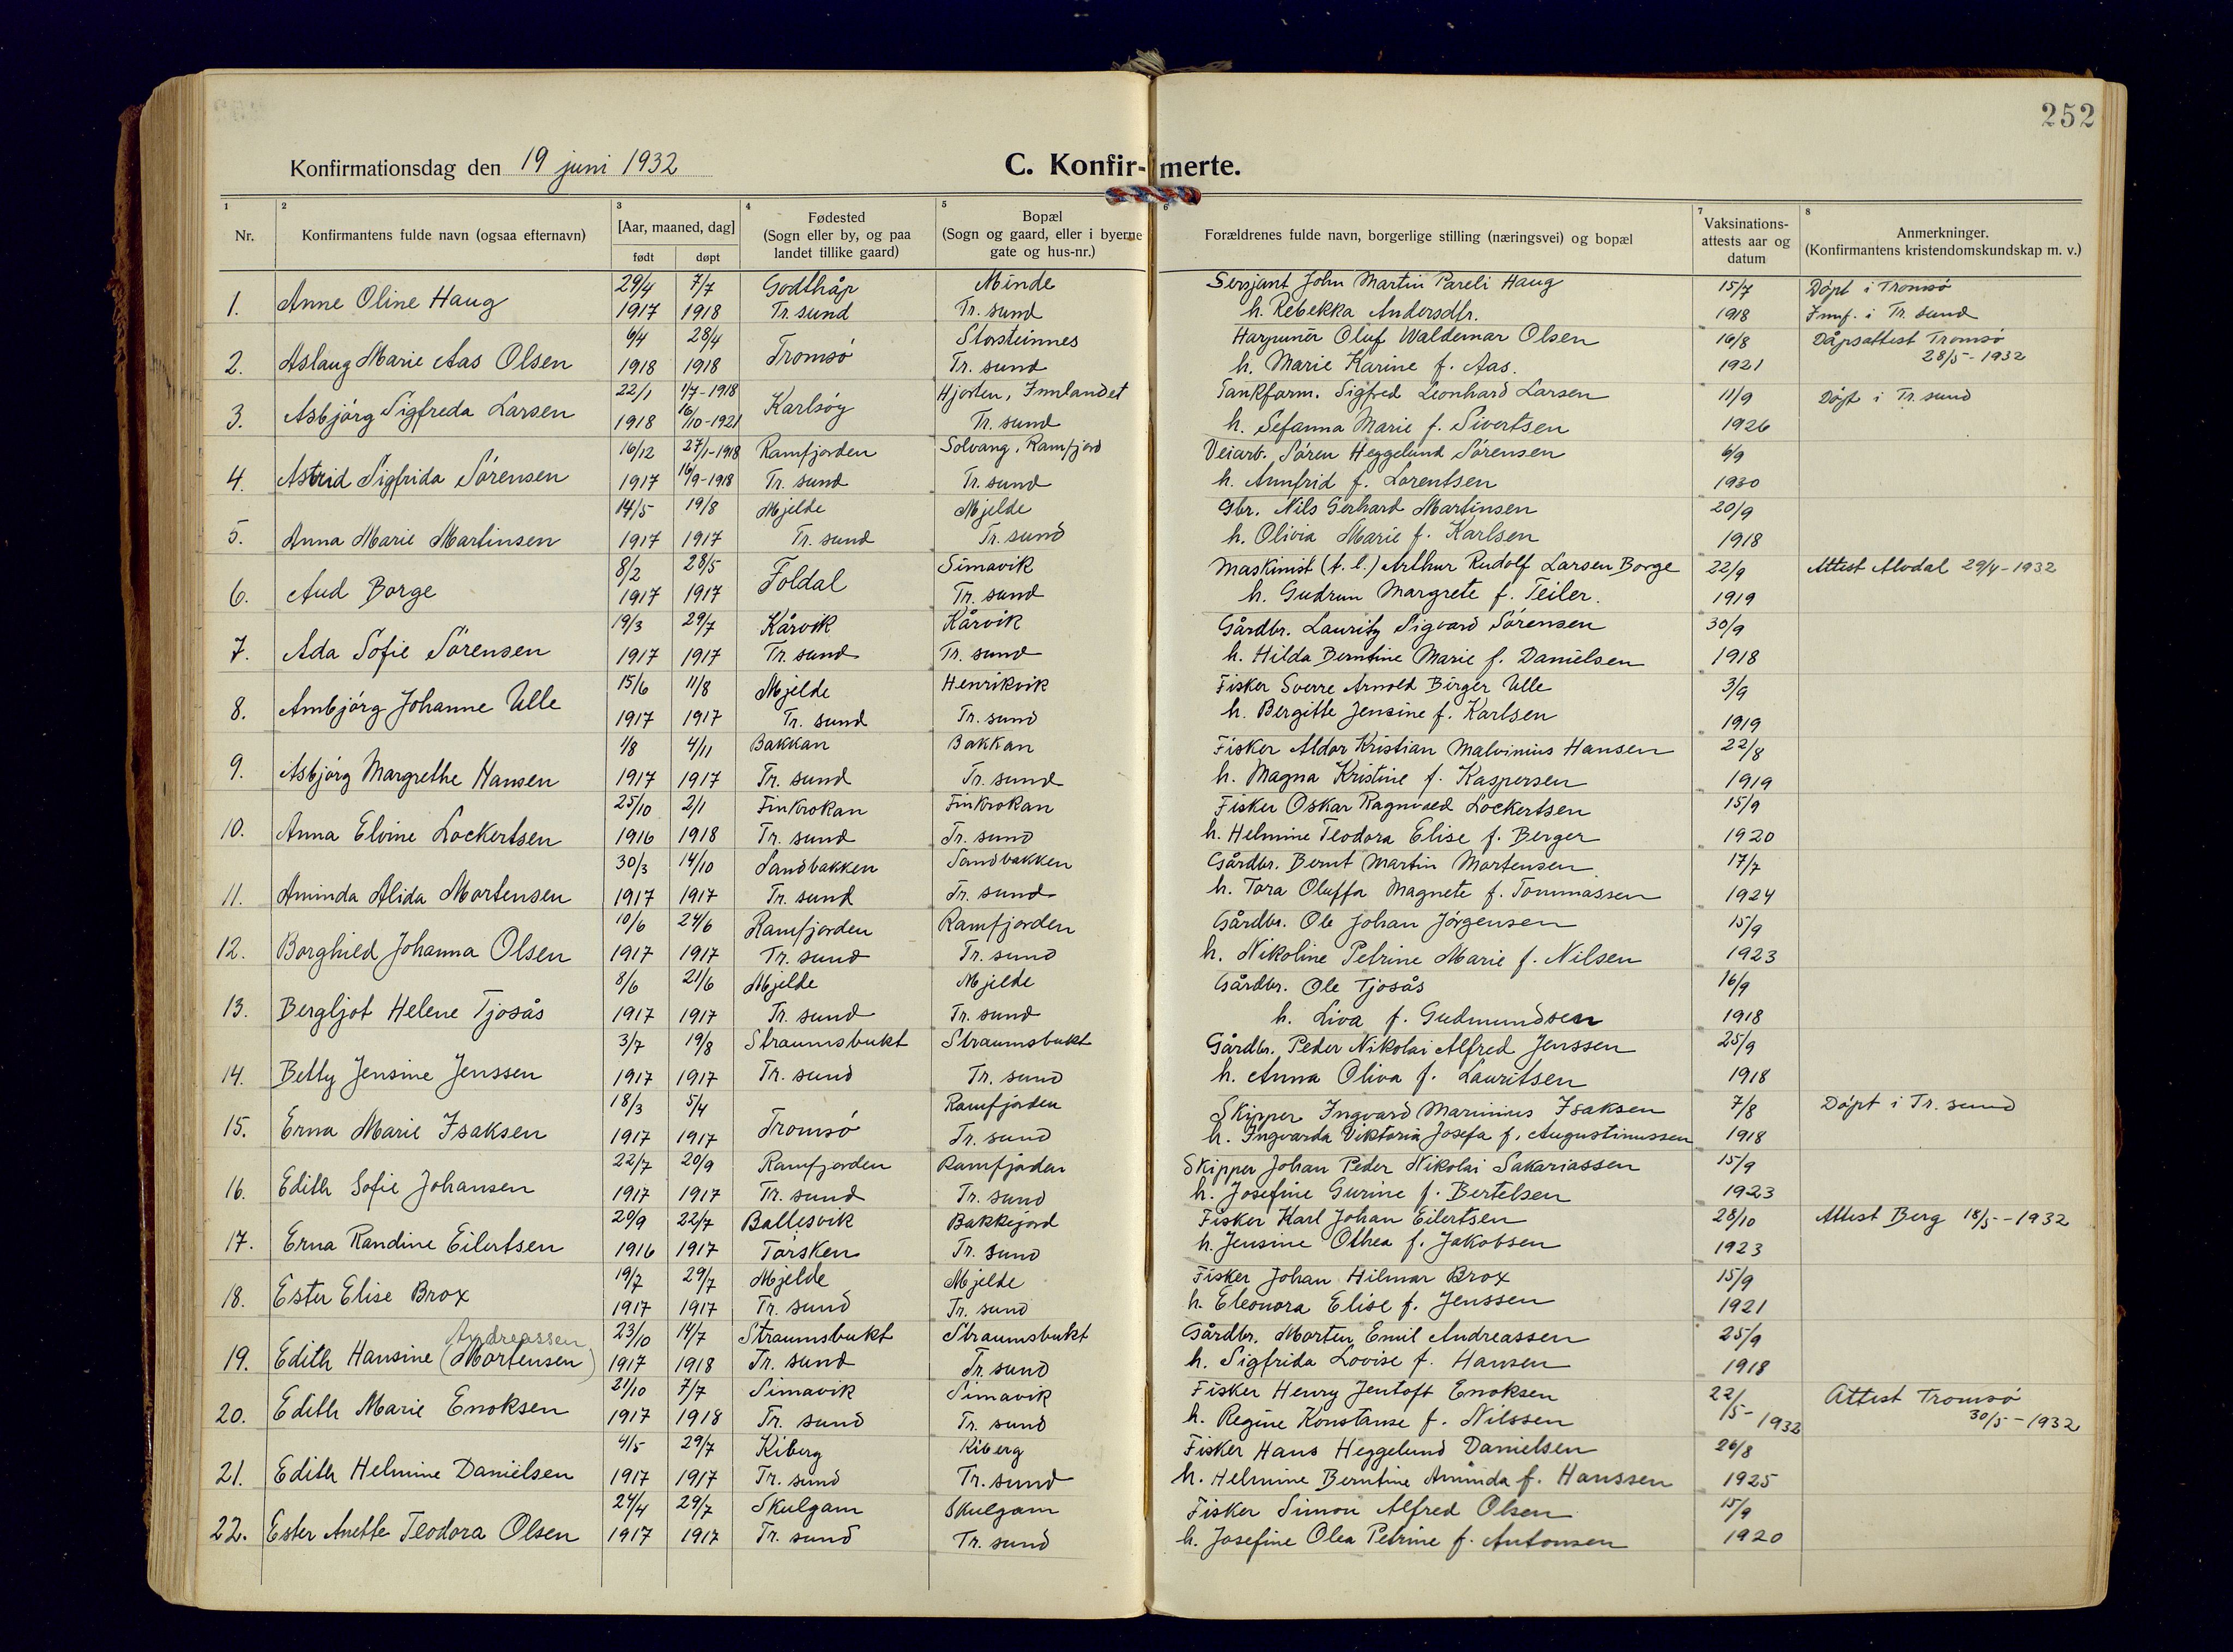 252
Konfirmationsdag den 19 juni 1932
C. Konfirmerte.
1 2 3 4 5 6 7 8
Nr. Konfirmantens fulde navn (ogsaa efternavn) [Aar, maaned, dag] født døpt Fødested (Sogn eller by, og paa landet tillike gaard) Bopæl (Sogn og gaard, eller i byerne gate og hus-nr.) Forældrenes fulde navn, borgerlige stilling (næringsvei) og bopæl Vaksinations-attests aar og datum Anmerkninger. (Konfirmantens kristendomskundskap m. v.)
29/4 7/7 Godthåp Minde Serjant John Martin Pareli Haug 15/7 Døpt i Tromsø
1. Anne Oline Haug 1917 1918 Tr. sund Tr. sund h. Rebekka Andersdtr. 1918 Innf. i Tr. sund
6/4 28/4 Storsteinnes Harpunér Oluf Waldemar Olsen 16/8 Dåpsattest Tromsø
2. Aslaug Marie Aas Olsen 1918 1918 Tromsø Tr. sund h. Marie Karine f. Aas. 1921 28/5-1932
22/1 1/7-1918 Karlsøy Hjorten, Innlandet Tankform. Sigfred Leonhard Larsen 11/9 Døpt i Tr. sund
3. Asbjørg Sigfreda Larsen 1918 16/10-1921 Tr. sund h. Sefanna Marie f. Sivertsen 1926
16/12 27/1-1918 Ramfjorden Solvang, Ramfjord Veiarb. Søren Heggelund Sørensen 6/9
4. Astrid Sigfrida Sørensen 1917 16/9-1918 Tr. sund Tr. sund h. Annfrid f. Lorentsen 1930
14/5 19/8 Mjelde Mjelde Gbr. Nils Gerhard Martinsen 20/9
5. Anna Marie Martinsen 1917 1917 Tr. sund Tr. sund h. Olivia Marie f. Karlsen 1918
8/2 28/5 Foldal Simavik Maskinist (t. l.) Arthur Rudolf Larsen Borge 22/9 Attest Alvdal 29/4-1932
6. Aud Borge 1917 1917 Tr. sund h. Gudrun Margrete f. Teiler. 1919
19/3 29/7 Kårvik Kårvik Gårdbr. Lauritz Sigvard Sørensen 30/9
7. Ada Sofie Sørensen 1917 1917 Tr. sund Tr. sund h. Hilda Berntine Marie f. Danielsen 1918
15/6 11/8 Mjelde Henrikvik Fisker Sverre Arnold Birger Ulle 3/9
8. Ambjørg Johanne Ulle 1917 1917 Tr. sund Tr. sund h. Bergitte Jensine f. Karlsen 1919
1/8 4/11 Bakkan Bakkan Fisker Aldor Kristian Malvinius Hansen 22/8
9. Asbjørg Margrethe Hansen 1917 1917 Tr. sund Tr. sund h. Magna Kristine f. Kaspersen 1919
25/10 2/1 Finkrokan Finkrokan Fisker Oskar Ragnvald Lockertsen 15/9
10. Anna Elvine Lockertsen 1916 1918 Tr. sund Tr. sund h. Helmine Teodora Elise f. Berger 1920
30/3 14/10 Sandbakken Sandbakken Gårdbr. Bernt Martin Mortensen 17/7
11. Aminda Alida Mortensen 1917 1917 Tr. sund Tr. sund h. Tora Oluffa Magnete f. Tommassen 1924
10/6 24/6 Ramfjorden Ramfjorden Gårdbr. Ole Johan Jørgensen 15/9
12. Borghild Johanna Olsen 1917 1917 Tr. sund Tr. sund h. Nikoline Petrine Marie f. Nilsen 1923
8/6 21/6 Mjelde Mjelde Gårdbr. Ole Tjosås 16/9
13. Bergljot Helene Tjosås 1917 1917 Tr. sund Tr. sund h. Liva f. Gudmundsen 1918
3/7 19/8 Straumsbukt Straumsbukt Gårdbr. Peder Nikolai Alfred Jenssen 25/9
14. Betty Jensine Jenssen 1917 1917 Tr. sund Tr. sund h. Anna Oliva f. Lauritsen 1918
18/3 5/4 Ramfjorden Skipper Ingvard Marinius Isaksen 7/8 Døpt i Tr. sund
15. Erna Marie Isaksen 1917 1917 Tromsø Tr. sund h. Ingvarda Viktoria Josefa f. Augustinussen 1918
22/7 20/9 Ramfjorden Ramfjorden Skipper Johan Peder Nikolai Sakariassen 15/9
16. Edith Sofie Johansen 1917 1917 Tr. sund Tr. sund h. Josefine Gurine f. Bertelsen 1923
20/9 22/7 Ballesvik Bakkejord Fisker Karl Johan Eilertsen 28/10 Attest Berg 18/5-1932
17. Erna Randine Eilertsen 1916 1917 Torsken Tr. sund h. Jensine Othea f. Jakobsen 1923
19/7 29/7 Mjelde Mjelde Fisker Johan Hilmar Brox 15/9
18. Ester Elise Brox 1917 1917 Tr. sund Tr. sund h. Eleonora Elise f. Jenssen 1921
Andreassen 23/10 14/7 Straumsbukt Straumsbukt Gårdbr. Morten Emil Andreassen 25/9
19. Edith Hansine (Mortensen) 1917 1918 Tr. sund Tr. sund h. Sigfrida Lovise f. Hansen 1918
21/10 7/7 Simavik Simavik Fisker Henry Jentoft Enoksen 22/5-1932 Attest Tromsø
20. Edith Marie Enoksen 1917 1918 Tr. sund Tr. sund h. Regine Konstanse f. Nilssen 30/5-1932
4/5 29/7 Kiberg Kiberg Fisker Hans Heggelund Danielsen 26/8
21. Edith Helmine Danielsen 1917 1917 Tr. sund Tr. sund h. Helmine Berntine Aminda f. Hanssen 1925
24/4 29/7 Skulgam Skulgam Fisker Simon Alfred Olsen 15/9
22. Ester Anette Teodora Olsen 1917 1917 Tr. sund Tr. sund h. Josefine Olea Petrine f. Antonsen 1920